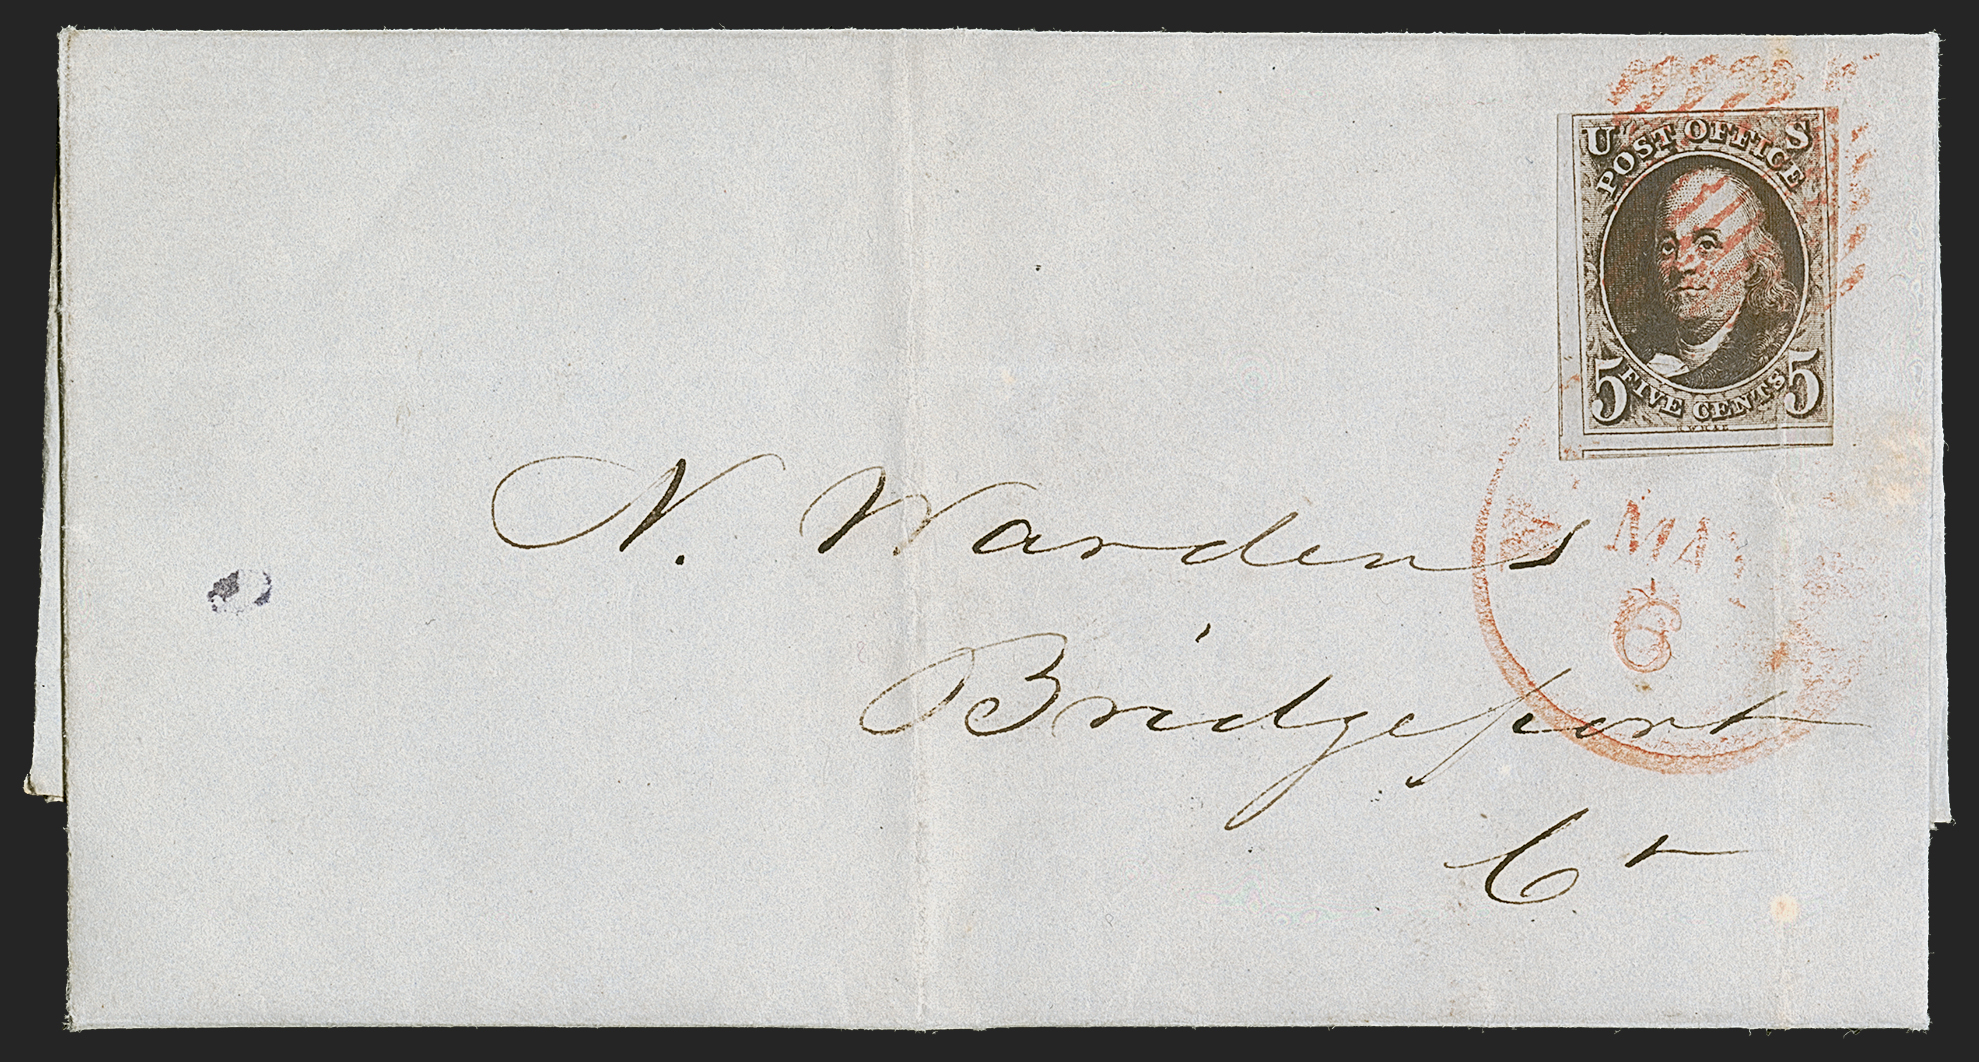 U S
POST OFFICE
5 FIVE CENTS 5
N. Wardens
MAY
6
Bridgeport
Ct